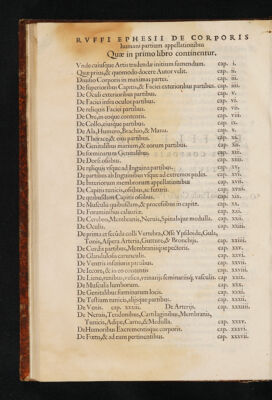 RVFFI EPHESII DE CORPORIS
humani partium appellationibus
Quæ in primo libro continentur.
Vnde cuiusque Artis tradendæ initium sumendum. cap. i.
Quæ prius, & quomodo docere Autor velit. cap. ii.
Diuisio Corporis in maximas partes. cap. iii.
De superioribus Capitis, & Faciei exterioribus partibus. cap. iiii.
De Oculi exterioribus partibus. cap. v.
De Faciei infra oculos partibus. cap. vi.
De reliquis Faciei partibus. cap. vii.
De Ore, in eoque contentis. cap. viii.
De Collo, eiusque partibus. cap. ix.
De Ala, Humero, Brachio, & Manu. cap. x.
De Thorace, & eius partibus. cap. xi.
De Genitalibus marium, & eorum partibus. cap. xii.
De fœminarum Genitalibus. cap. xiii.
De Dorsi ossibus. cap. xiiii.
De reliquis vsque ad Inguina partibus. cap. xv.
De partibus ab Inguinibus vsque ad extremos pedes. cap. xvi.
De Interiorum membrorum appellationibus cap. xvii.
De Capitis tunicis, ossibus, & suturis. cap. xviii.
De quibusdam Capitis ossibus. cap. xix.
De Musculis quibusdam, & processibus in capite. cap. xx.
De Foraminibus caluariæ. cap. xxi.
De Cerebro, Membranis, Neruis, Spinalique medulla. cap. xxii.
De Oculis. cap. xxiii.
De prima et secunda colli Vertebra, Osse Ypsiloide, Gula,
Tonsis, Aspera Arteria, Gutture, & Bronchijs. cap. xxiiii.
De Cordis partibus, Membranisque pectoris. cap. xxv.
De Glandulosis carunculis. cap. xxvi.
De Ventris infatioris partibus. cap. xxvii.
De Iecore, & in eo contentis cap. xxviii.
De Liene, renibus, vesica, vrinarijs seminarijsque vasculis. cap. xxix.
De Musculis lumborum. cap. xxx.
De Genitalibus fœminarum locis. cap. xxxi.
De Testium tunicis, alijsque partibus. cap. xxxii.
De Venis. cap. xxxiii. De Arterijs. cap. xxxiiii.
De Neruis, Tendonibus, Cartilaginibus, Membranis,
Tunicis, Adipe, Carne, & Medulla. cap. xxxv.
De Humoribus Excrementisque corporis. cap. xxxvi.
De Fœtu, & ad eum pertinentibus. cap. xxxvii.